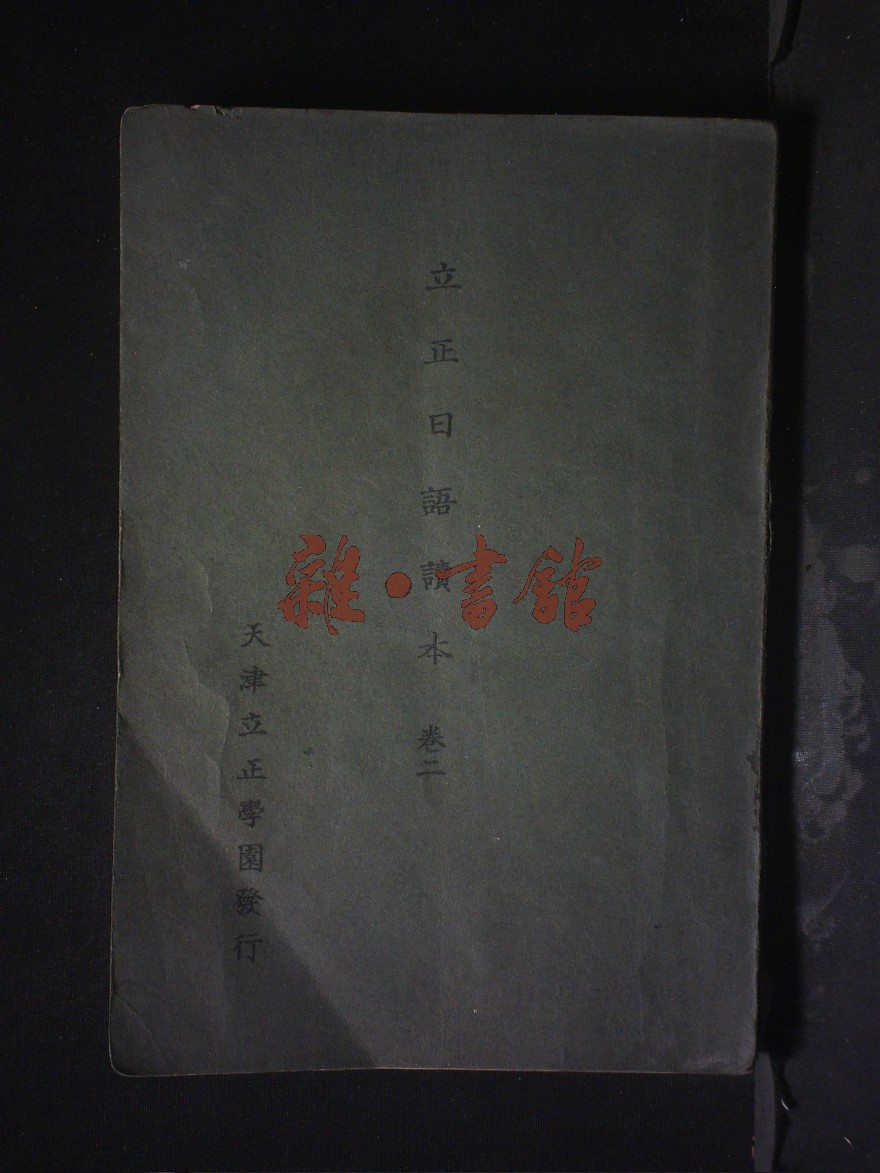 立正日語讀本 卷二
天津立正學園發行
雜·書館